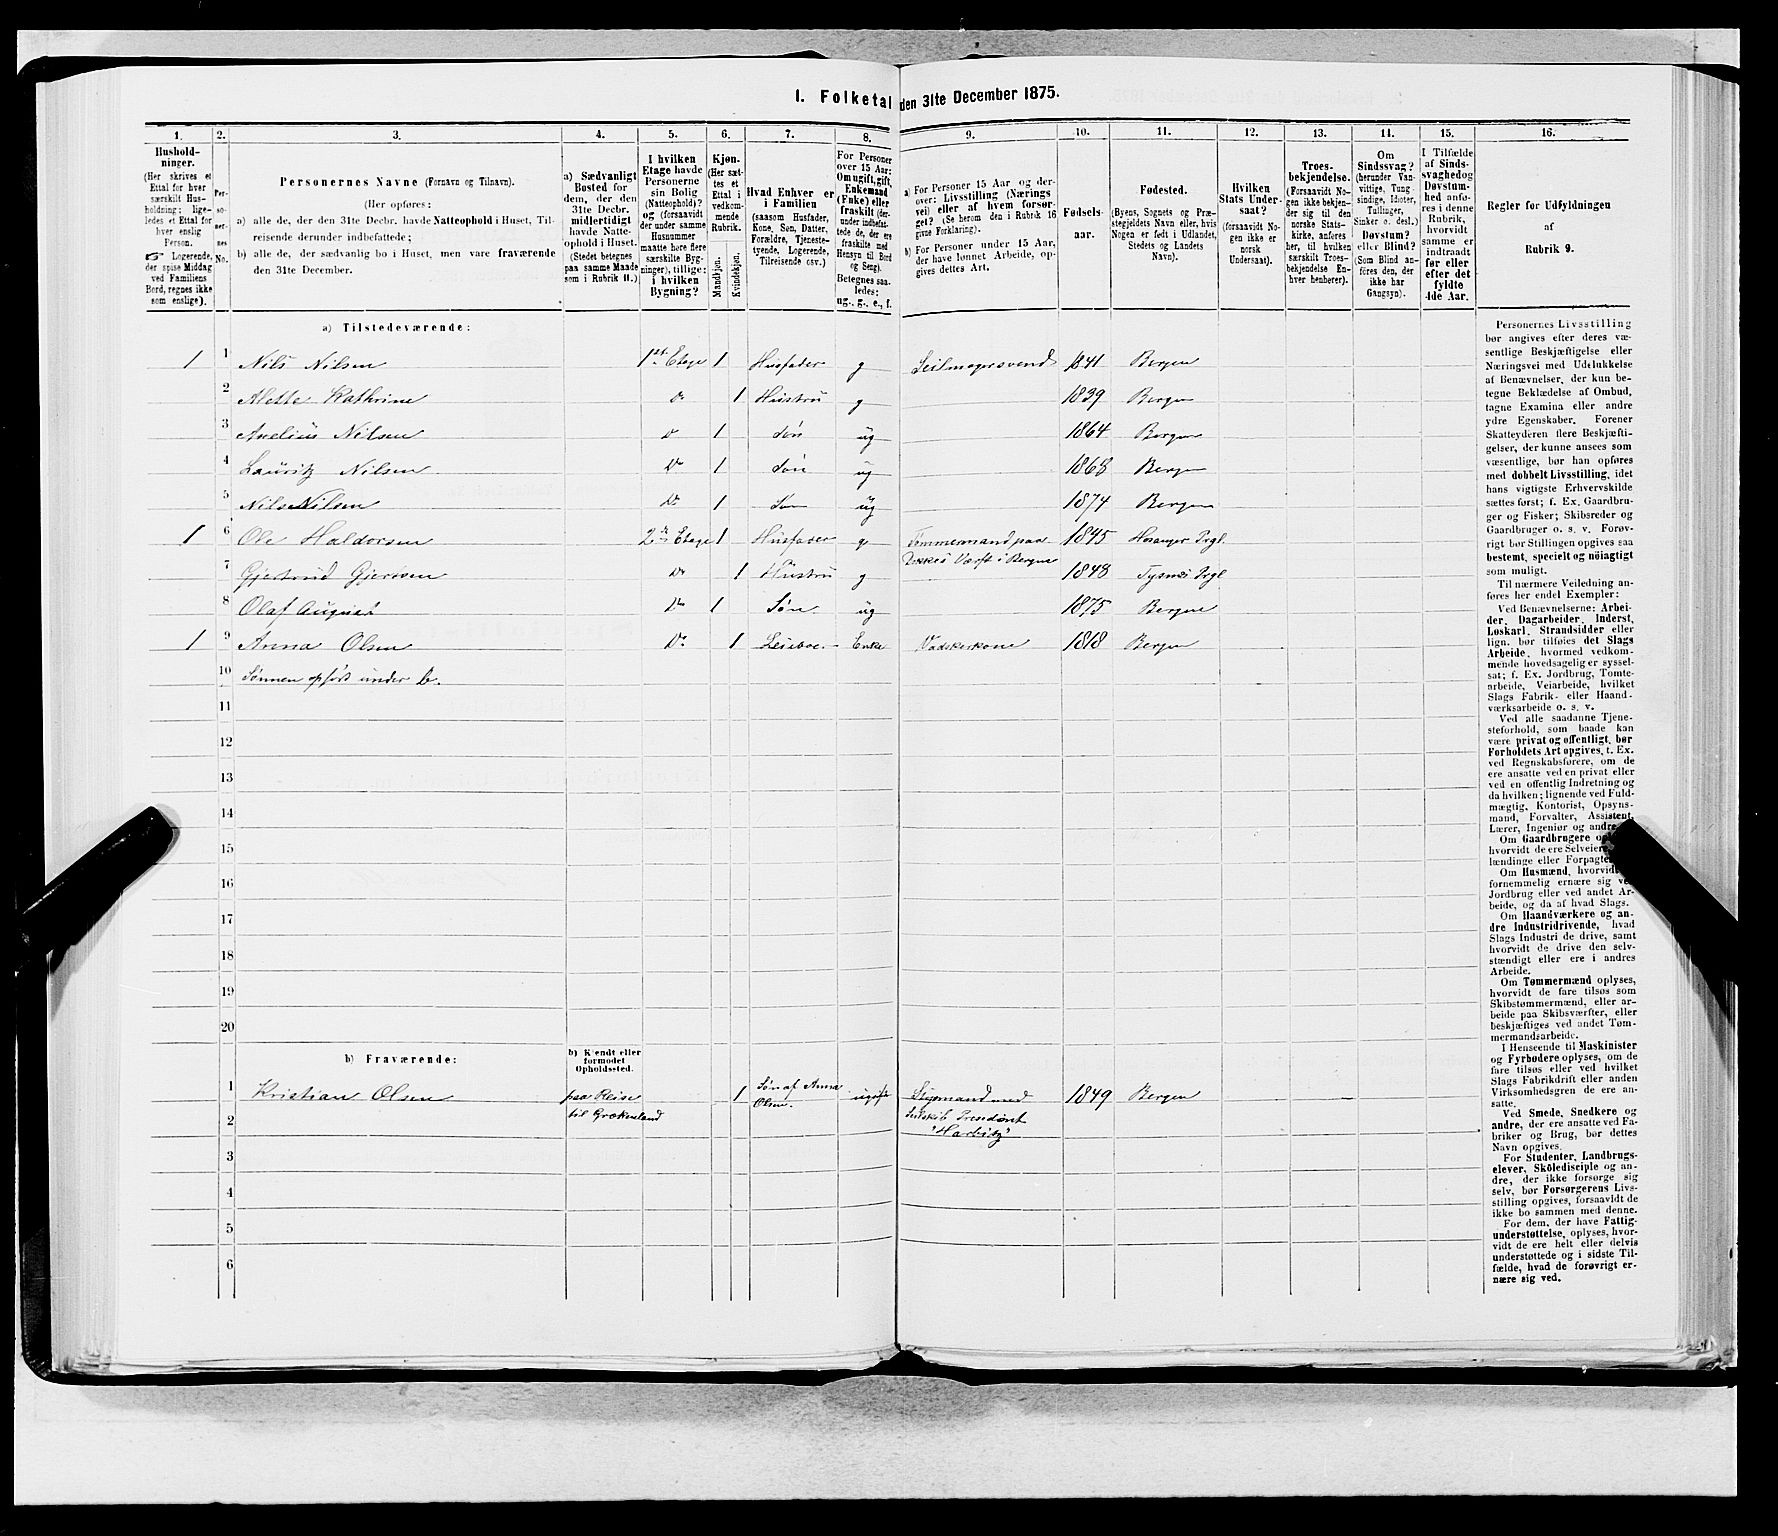 I. Folketal den 31te December 1875.
1. 2. 3. 4. 5. 6. 7. 8. 9. 10. 11. 12. 13. 14. 15. 16.
Hushold-
ninger.
(Her skrives et
Ettal for hver
særskilt Hus-
holdning; lige-
ledes et Ettal for
hver enslig
Person.
☞ Logerende,
der spise Middag
ved Familiens
Bord, regnes ikke
som enslige).
Per-
so-
ner-
nes
No.
Personernes Navne (Fornavn og Tilnavn).
(Her opføres:
a) alle de, der den 31te Decbr. havde Natteophold i Huset, Til-
reisende derunder indbefattede;
b) alle de, der sædvanlig bo i Huset, men vare fraværende
den 31te December.
a) Sædvanligt
Bosted for
dem, der den
31te Decbr.
midlertidigt
havde Natte-
ophold i Huset.
(Stedet betegnes
paa samme Maade
som i Rubrik 11.)
I hvilken
Etage havde
Personerne
sin Bolig
(Natteophold)?
og (forsaavidt
der under samme
Husnummer
maatte høre flere
særskilte Byg-
ninger), tillige:
i hvilken
Bygning?
Kjøn.
(Her sæt-
tes et
Ettal i
vedkom-
mende
Rubrik.
Mandkjøn.
Kvindekjøn.
Hvad Enhver er
i Familien
(saasom Husfader,
Kone, Søn, Datter,
Forældre, Tjeneste-
tyende, Logerende,
Tilreisende osv.)
For Personer
over 15 Aar:
Om ugift, gift,
Enkemand
(Enke) eller
fraskilt (der-
under indbefat-
tede de, der ere
fraskilte med
Hensyn til Bord
og Seng).
Betegnes saa-
ledes:
ug., g., e., f.
a) For Personer 15 Aar og der-
over: Livsstilling (Nærings-
vei) eller af hvem forsør-
get? (Se herom den i Rubrik 16
givne Forklaring).
b) For Personer under 15 Aar,
der have lønnet Arbeide, op-
gives dettes Art.
Fødsels-
aar.
Fødested.
(Byens, Sognets og Præ-
stegjeldets Navn eller, hvis
Nogen er født i Udlandet,
Stedets og Landets
Navn).
Hvilken
Stats Under-
saat?
(forsaavidt No-
gen ikke er
norsk
Undersaat).
Troes-
bekjendelse.
(Forsaavidt No-
gen ikke bekjen-
der sig til den
norske Stats-
kirke, anføres
her, til hvilken
særskilt Troes-
bekjendelse En-
hver henhører).
Om
Sindssvag?
(herunder Van-
vittige, Tung-
sindige, Idioter,
Tullinger,
Sinker o. desl.)
Døvstum?
eller Blind?
(Som Blind an-
føres den, der
ikke har
Gangsyn).
I Tilfælde
af Sinds-
svaghed og
Døvstum-
hed anfø-
res i denne
Rubrik,
hvorvidt
samme er
indtraadt
før eller
efter det
fyldte
4de Aar.
Regler for Udfyldningen
af
Rubrik 9.
a) Tilstedeværende:
1 1 Nils Nilsen 1ste Etage 1 Husfader g Seilmagersvend 1841 Bergen
2 Alette Kathrine Do 1 Hustru g 1839 Bergen
3 Anelius Nilsen Do 1 Søn ug 1864 Bergen
4 Lauritz Nilsen Do 1 Søn ug 1868 Bergen
5 Nils Nilsen Do 1 Søn ug 1874 Bergen
1 6 Ole Haldorsen 2den Etage 1 Husfader g Tømmermand paa 1845 Hosanger Prgl.
Værft i Bergen
7 Gjertrud Gjertsen Do 1 Hustru g 1848 Tysnes Prgl
8 Olaf August Do 1 Søn ug 1875 Bergen
1 9 Anna Olsen Do 1 Enke Vadskerkone 1818 Bergen
10 Sønnen opført under b.
11
12
13
14
15
16
17
18
19
20
b) Fraværende:
b) Kjendt eller
formodet
Opholdssted.
1 Kristian Olsen paa Reise 1 Søn af Anna ugift Styrmand med 1849 Bergen
Olsen.
2 til Grækenland
"Harbitz"
3
4
5
6
Personernes Livsstilling
bør angives efter deres væ-
sentlige Beskjæftigelse eller
Næringsvei med Udelukkelse
af Benævnelser, der kun be-
tegne Beklædelse af Ombud,
tagne Examina eller andre
ydre Egenskaber. Forener
Skatteyderen flere Beskjæfti-
gelser, der kunne ansees som
væsentlige, bør han opføres
med dobbelt Livsstilling, idet
hans vigtigste Erhvervskilde
sættes først; f. Ex. Gaardbru-
ger og Fisker; Skibsreder og
Gaardbruger o. s. v. Forøv-
rigt bør Stillingen opgives saa
bestemt, specielt og nøiagtigt
som muligt.
Til nærmere Veiledning an-
føres her endel Exempler:
Ved Benævnelserne: Arbei-
der, Dagarbeider, Inderst,
Løskarl, Strandsidder eller
lign. bør tilføies det Slags
Arbeide, hvormed vedkom-
mende hovedsagelig er syssel-
sat; f. Ex. Jordbrug, Tomte-
arbeide, Veiarbeide, hvilket
Slags Fabrik- eller Haand-
værksarbeide o. s. v.
Ved alle saadanne Tjene-
steforhold, som baade kan
være privat og offentligt, bør
Forholdets Art opgives, t. Ex.
ved Regnskabsførere, om de
ere ansatte ved en privat eller
ved en offentlig Indretning og
da hvilken; lignende ved Fuld-
mægtig, Kontorist, Opsyns-
mand, Forvalter, Assistent,
Lærer, Ingeniør og andre.
Om Gaardbrugere
hvorvidt de ere Selveiere,
lændinge eller
Om Husmænd, hvorvidt
fornemmelig ernære sig
Jordbrug eller ved andet Ar-
beide, og da af hvad Slags.
Om Haandværkere og an-
dre Industridrivende, hvad
Slags Industri de drive, samt
hvorvidt de drive den selv-
stændigt eller ere i andres
Arbeide.
Om Tømmermænd oplyses,
hvorvidt de fare tilsøs som
Skibstømmermænd, eller ar-
beide paa Skibsværfter, eller
beskjæftiges ved andet Tøm-
mermandsarbeide.
I Henseende til Maskinister
og Fyrbødere oplyses, om de
fare tilsøs eller ved hvilket
Slags Fabrikdrift eller anden
Virksomhedsgren de ere an-
satte.
Ved Smede, Snedkere og
andre, der ere ansatte ved Fa-
briker og Brug, bør dettes
Navn opgives.
For Studenter, Landbrugs-
elever, Skoledisciple og an-
dre, der ikke forsørge sig
selv, bør Forsørgerens Livs-
stilling opgives, forsaavidt de
ikke bo sammen med denne.
For dem, der have Fattig-
understøttelse, oplyses, hvor-
vidt de ere helt eller delvis
understøttede og i sidste Til-
fælde, hvad de forøvrigt er-
nære sig ved.